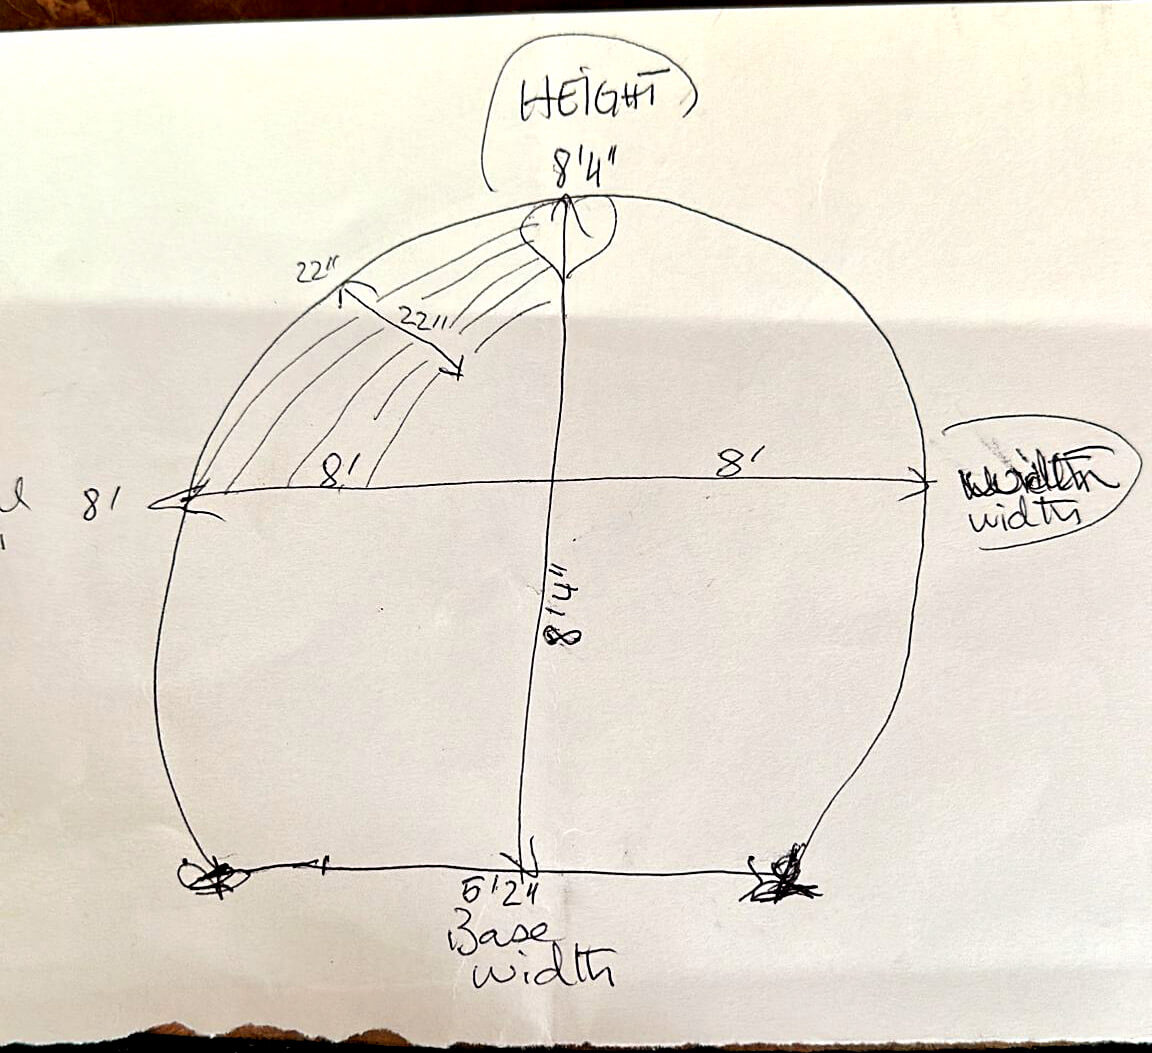 HEIGHT
8'4"
22"
22"
8'
8'
8'
width
8'4"
5'2"
Base
width